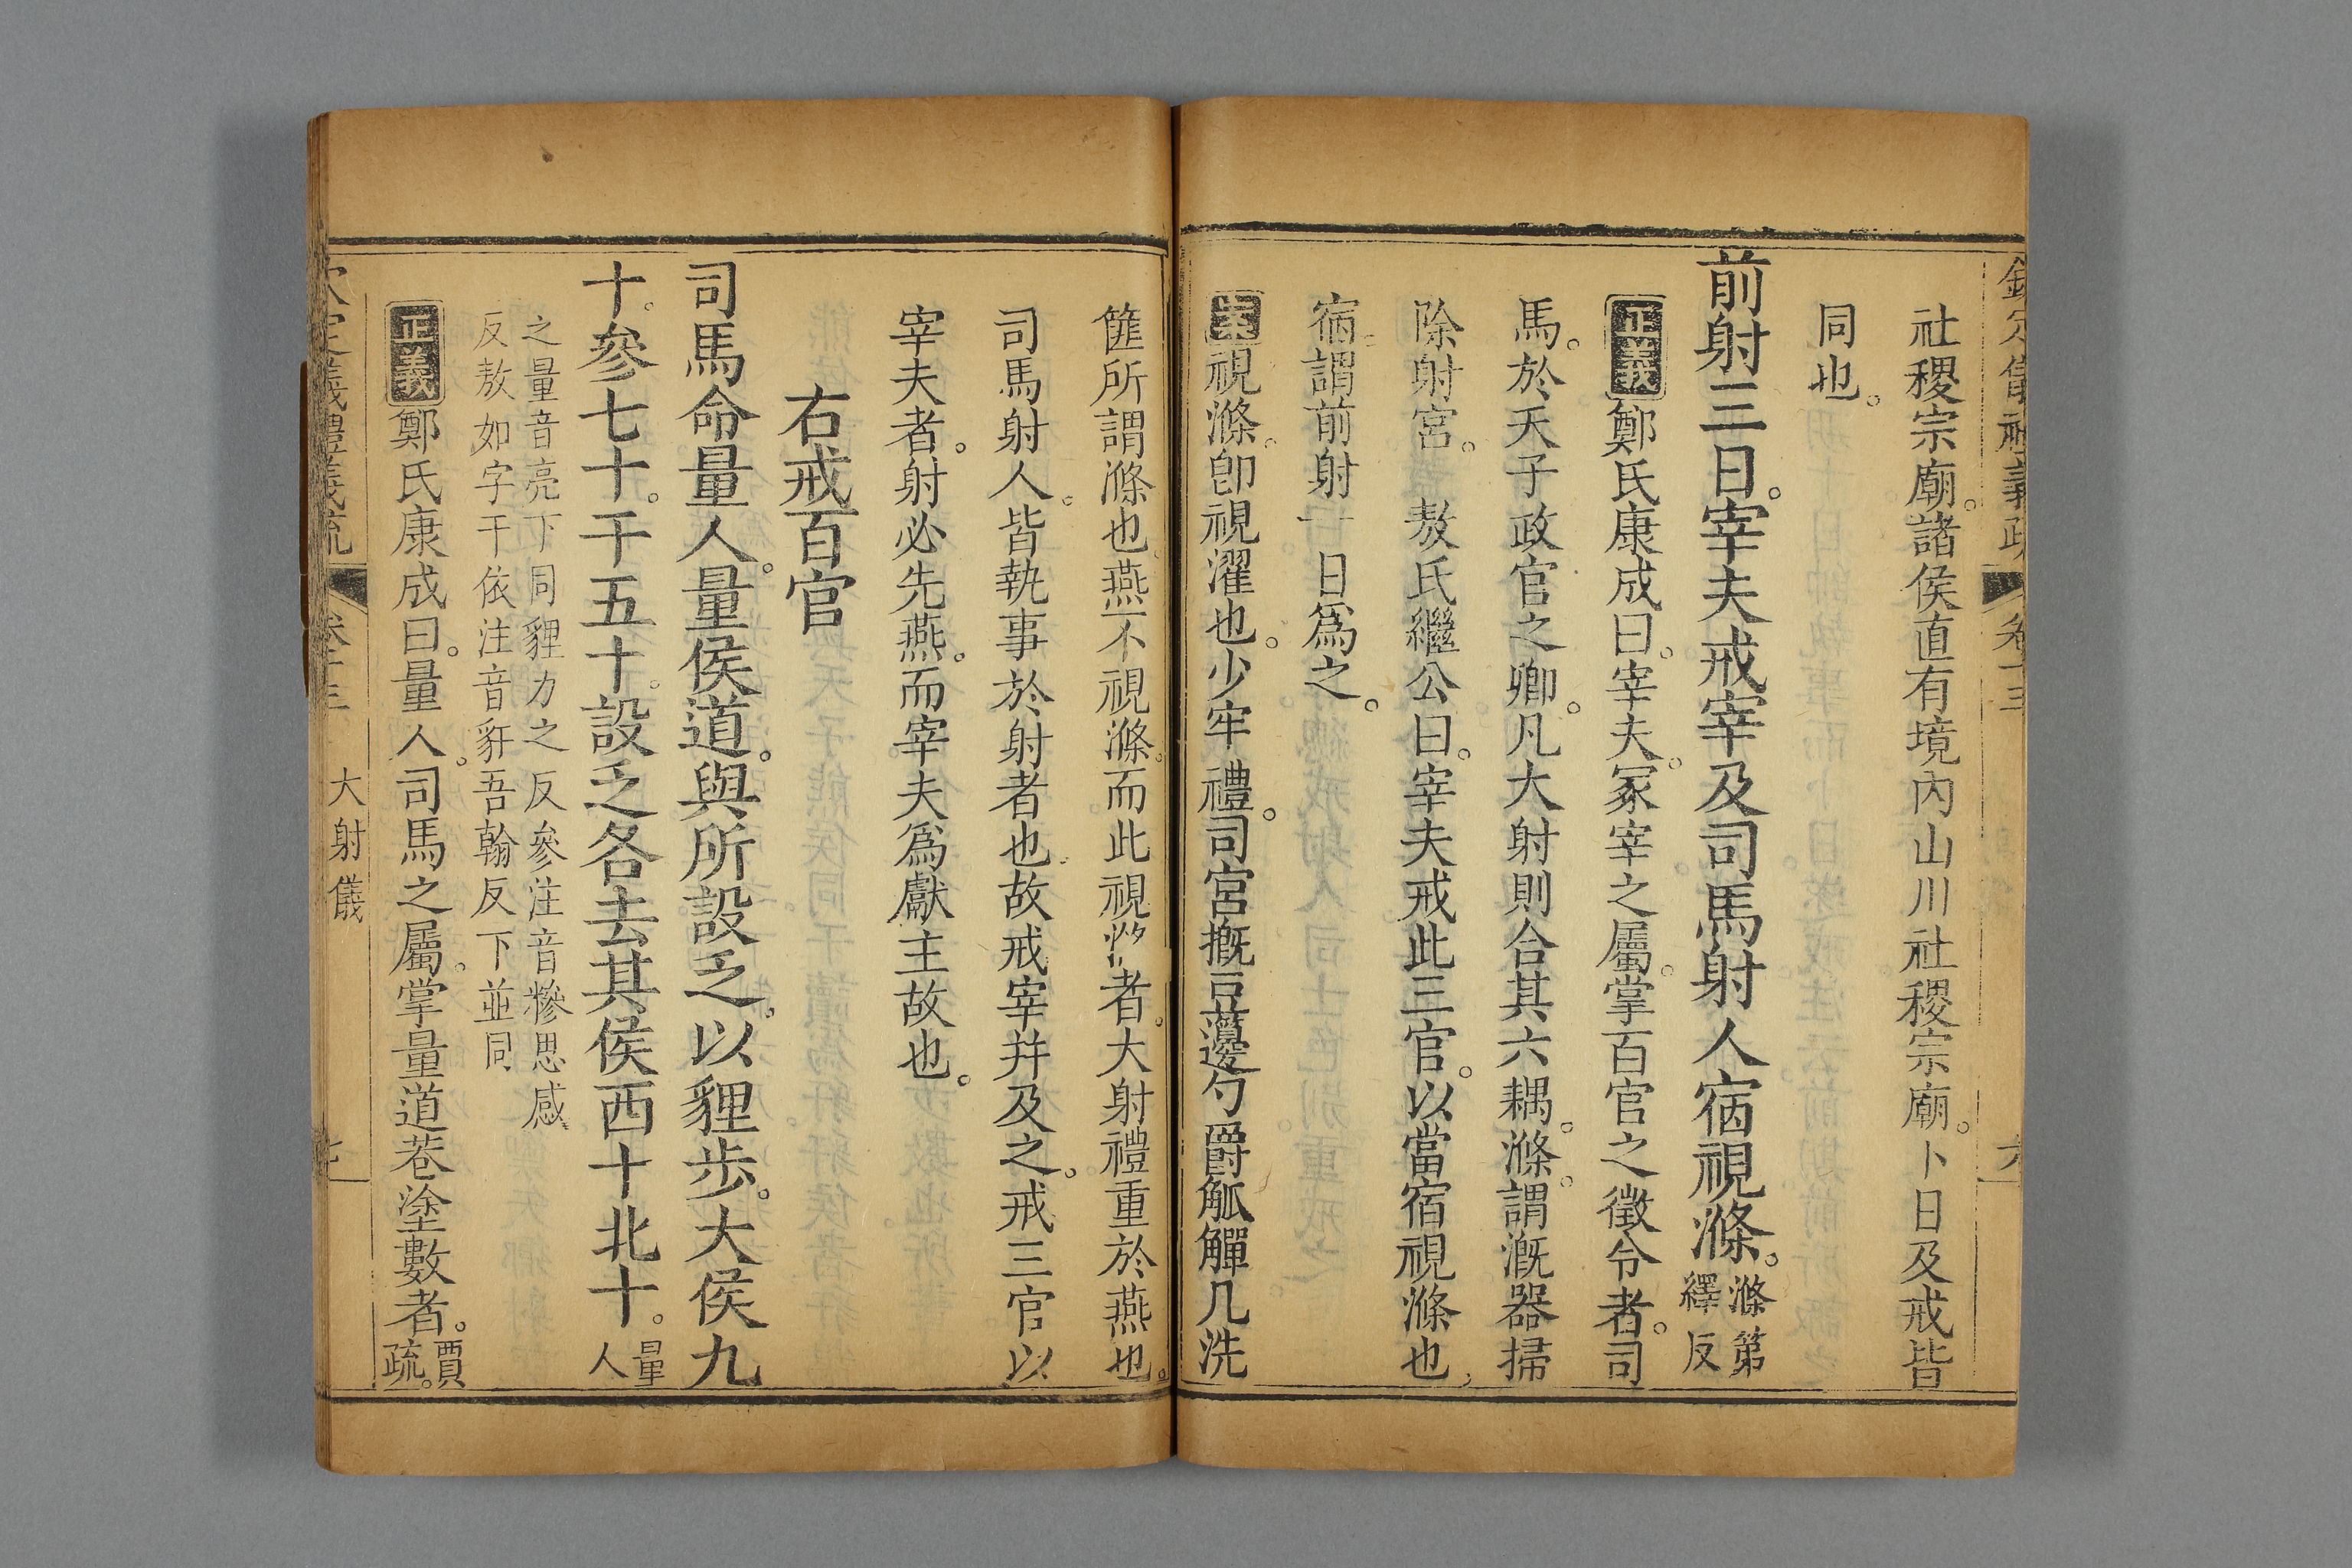 社稷宗廟。諸侯直有境內山川社稷宗廟。卜日及戒皆
同也。
前射三日。宰夫戒宰及司馬射人宿視滌。滌第
繹反
正義鄭氏康成曰。宰夫。冢宰之屬。掌百官之徵令者。司
馬。於天子政官之卿。凡大射則合其六耦。滌。謂漑器掃
除射宮。 敖氏繼公曰。宰夫戒此三官。以當宿視滌也。
宿。謂前射一日爲之。
視滌。卽視濯也。少牢禮。司宮摡豆籩勺爵觚觶几洗
篚所謂滌也。燕不視滌。而此視者。大射禮重於燕也。
司馬射人。皆執事於射者也。故戒宰并及之。戒三官以
宰夫者。射必先燕。而宰夫爲獻主故也。
右戒百官
司馬命量人。量侯道。與所設乏。以貍步。大侯九
十。參七十。干五十。設乏各去其侯西十北十。量
人
之量音亮下同貍力之反參注音糝思感
反敖如字干依注音豻吾翰反下並同
正義鄭氏康成曰。量人。司馬之屬。掌量道巷塗數者。賈
疏。
卷十三
大射儀